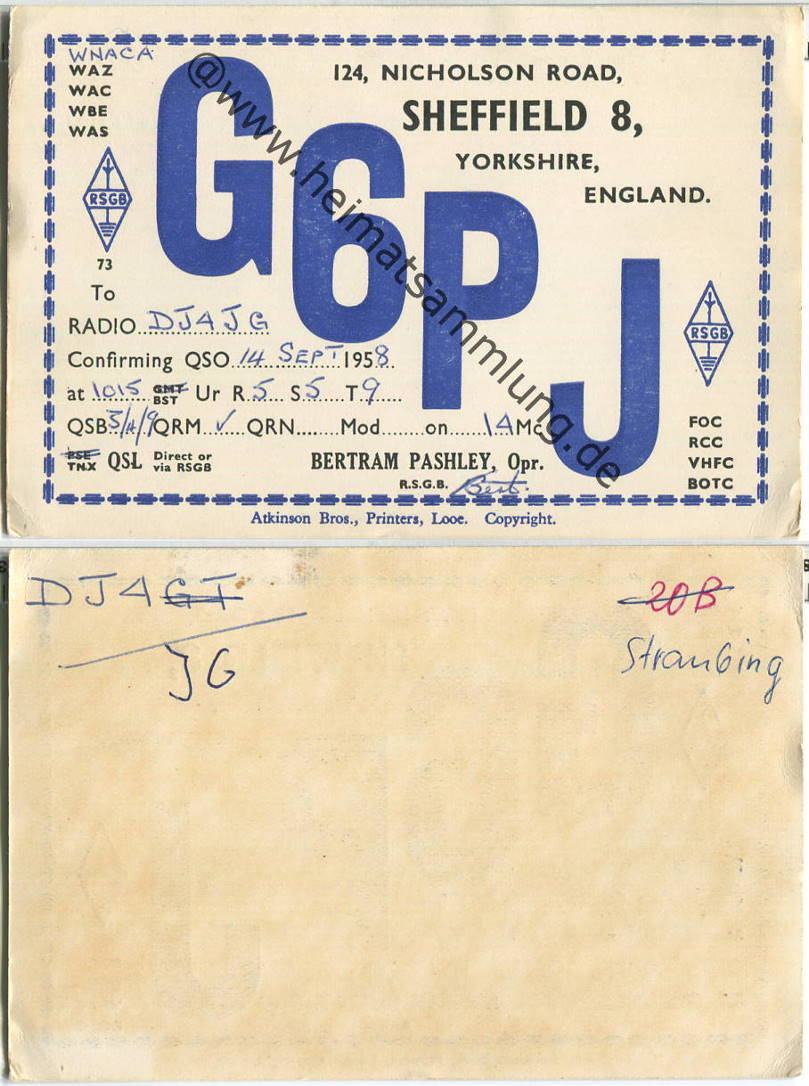 WNACA
WAZ
WAC
WBE
WAS
RSGB
73
124, NICHOLSON ROAD,
SHEFFIELD 8,
YORKSHIRE,
ENGLAND.
G6PJ
@www.heimatsammlung.de
To
RADIO DJ4JG
Confirming QSO 14 SEPT 1958
at 1015 GMT BST Ur R 5 S 5 T 9
QSB 5/4/9 QRM ✓ QRN........ Mod......on 14 Mc
PSE TNX QSL Direct or via RSGB
BERTRAM PASHLEY, Opr.
R.S.G.B. Bert.
RSGB
FOC
RCC
VHFC
BOTC
Atkinson Bros., Printers, Looe. Copyright.
DJ4GI
JG
20B
Straubing